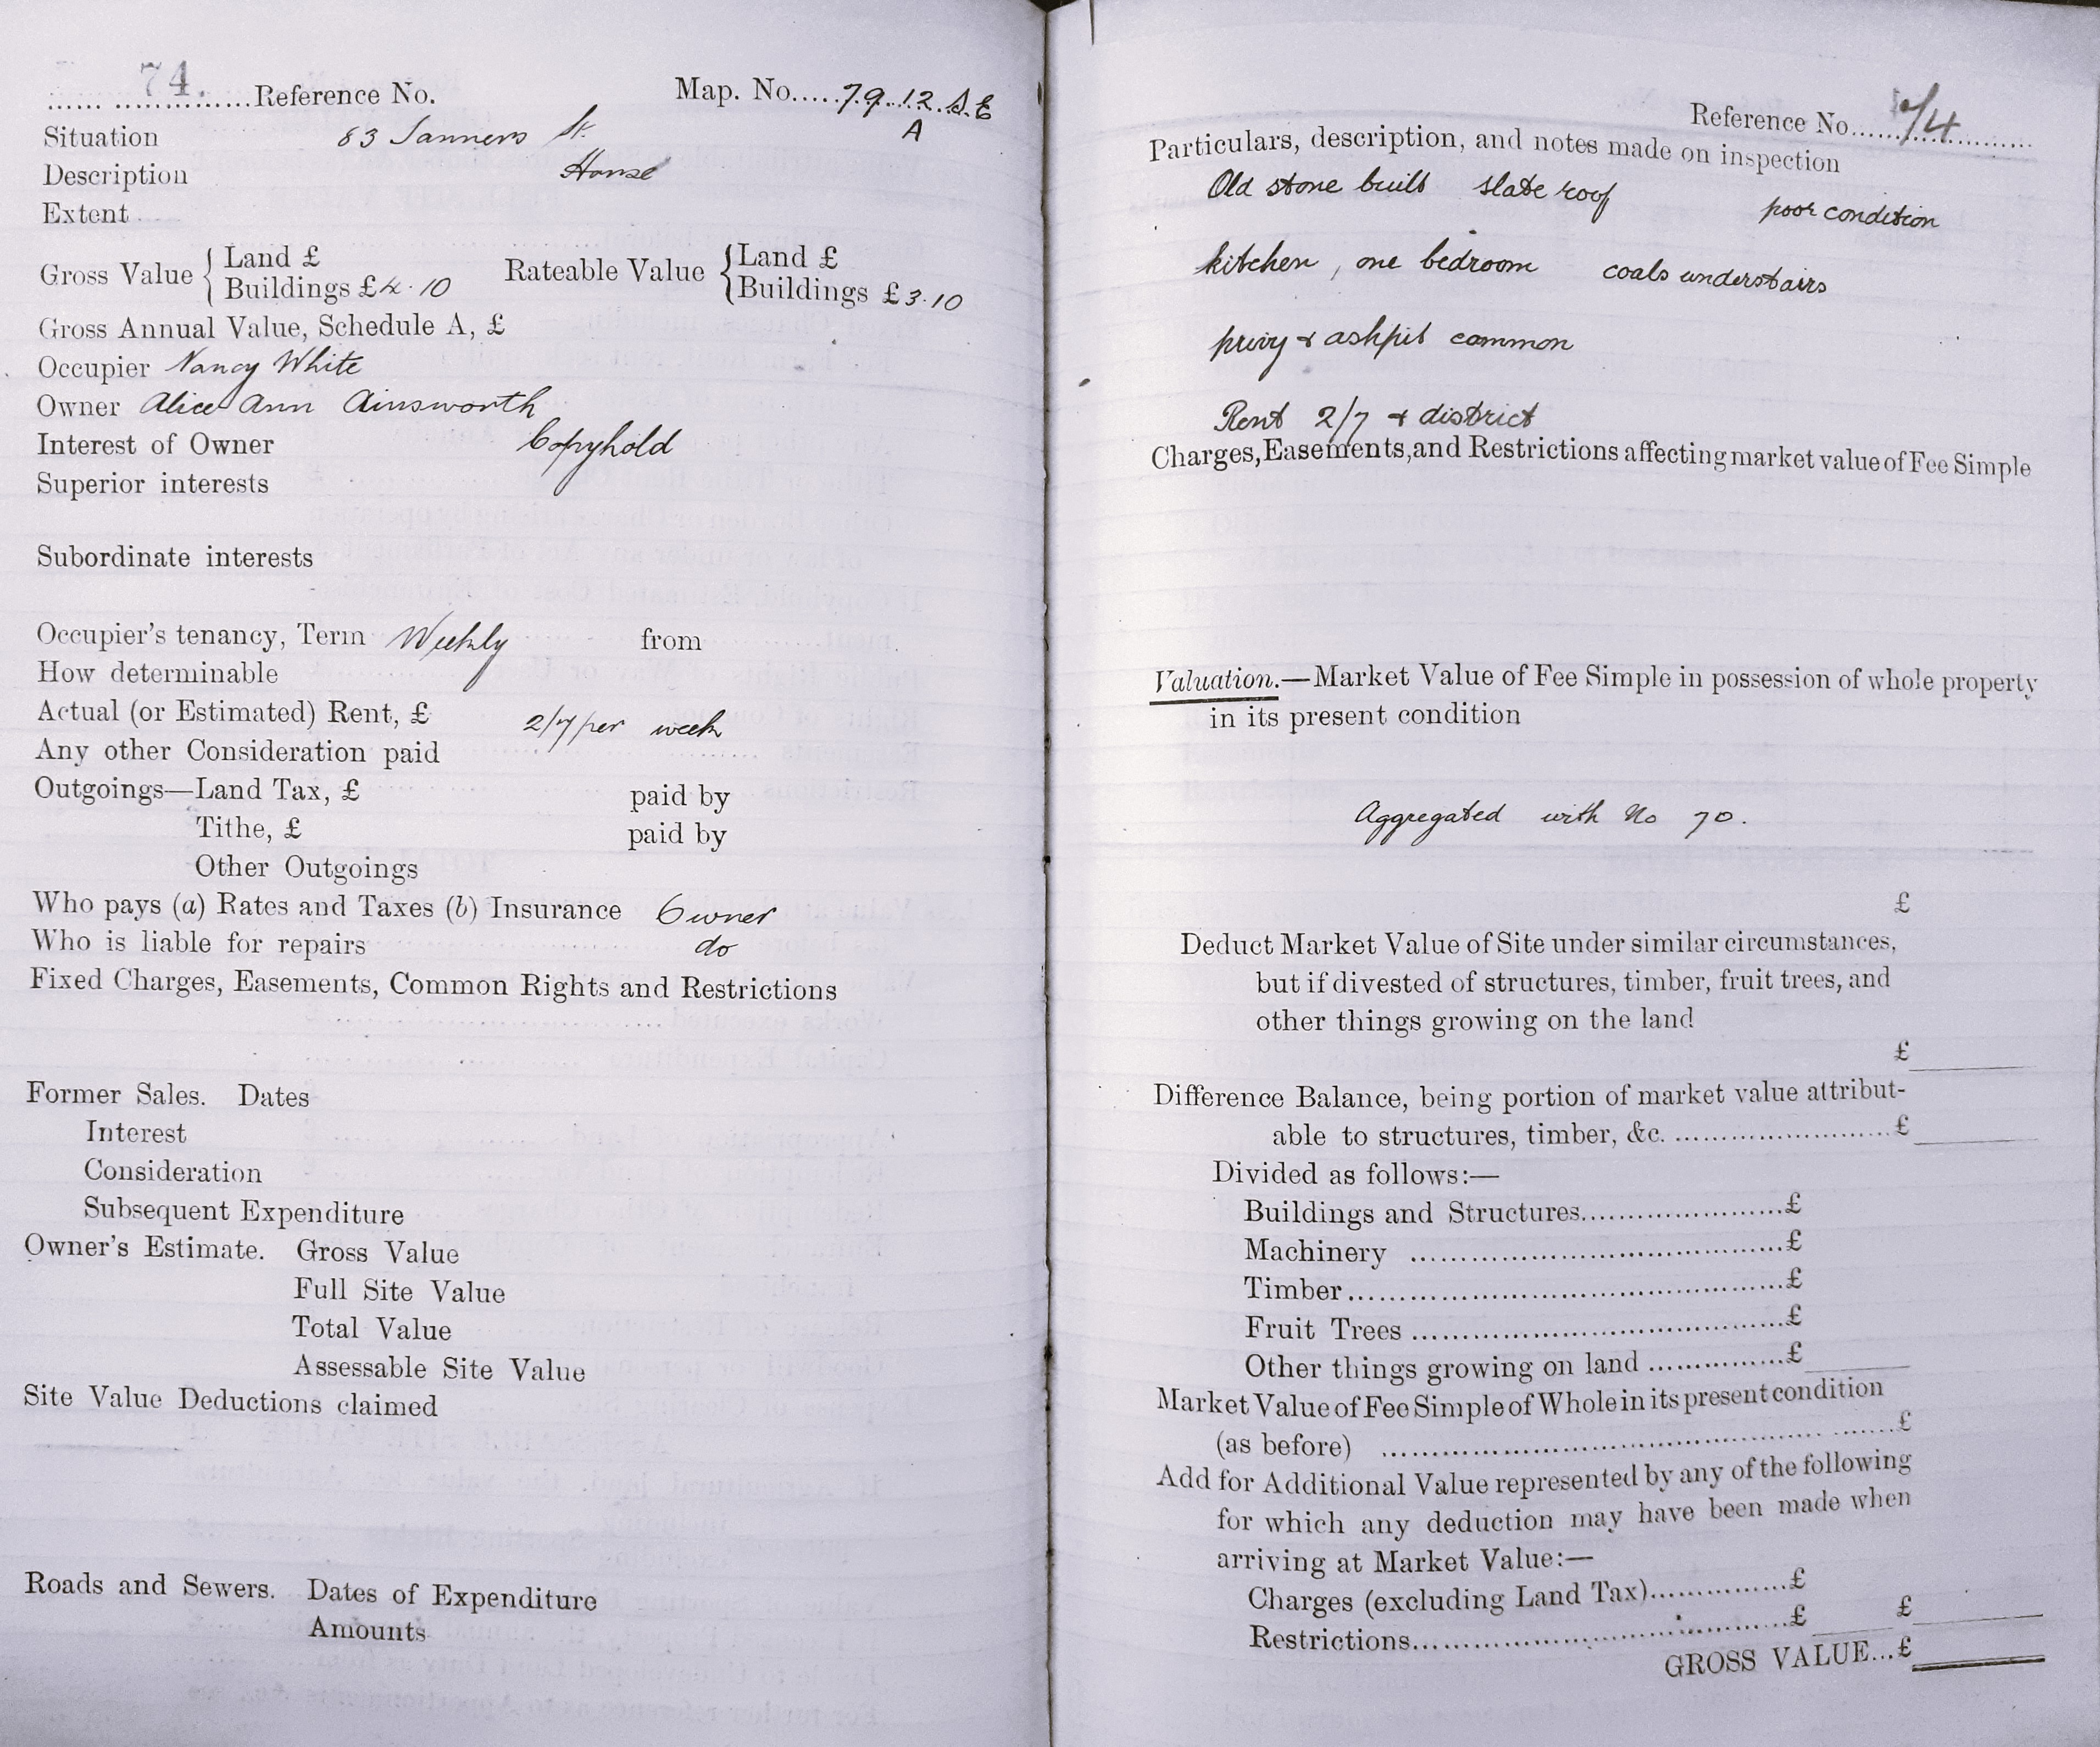 74. Reference No. Map. No. 79.12.S.E
A
Situation 83 Tanners St.
Description House
Extent
Gross Value { Land £ Rateable Value { Land £
Buildings £4.10 Buildings £3.10
Gross Annual Value, Schedule A, £
Occupier Nancy White
Owner Alice Ann Ainsworth
Interest of Owner Copyhold
Superior interests
Subordinate interests
Occupier's tenancy, Term Weekly from
How determinable
Actual (or Estimated) Rent, £ 2/7 per week
Any other Consideration paid
Outgoings—Land Tax, £ paid by
Tithe, £ paid by
Other Outgoings
Who pays (a) Rates and Taxes (b) Insurance Owner
Who is liable for repairs do
Fixed Charges, Easements, Common Rights and Restrictions
Former Sales. Dates
Interest
Consideration
Subsequent Expenditure
Owner's Estimate. Gross Value
Full Site Value
Total Value
Assessable Site Value
Site Value Deductions claimed
Roads and Sewers. Dates of Expenditure
Amounts
Reference No. 74
Particulars, description, and notes made on inspection
Old stone built slate roof poor condition
kitchen, one bedroom coals understairs
privy & ashpit common
Rent 2/7 & district
Charges, Easements, and Restrictions affecting market value of Fee Simple
Valuation.—Market Value of Fee Simple in possession of whole property
in its present condition
Aggregated with No 70.
£
Deduct Market Value of Site under similar circumstances,
but if divested of structures, timber, fruit trees, and
other things growing on the land
£
Difference Balance, being portion of market value attribut-
able to structures, timber, &c. £
Divided as follows:—
Buildings and Structures £
Machinery £
Timber £
Fruit Trees £
Other things growing on land £
Market Value of Fee Simple of Whole in its present condition
(as before) £
Add for Additional Value represented by any of the following
for which any deduction may have been made when
arriving at Market Value:—
Charges (excluding Land Tax) £
Restrictions £ £
GROSS VALUE...£